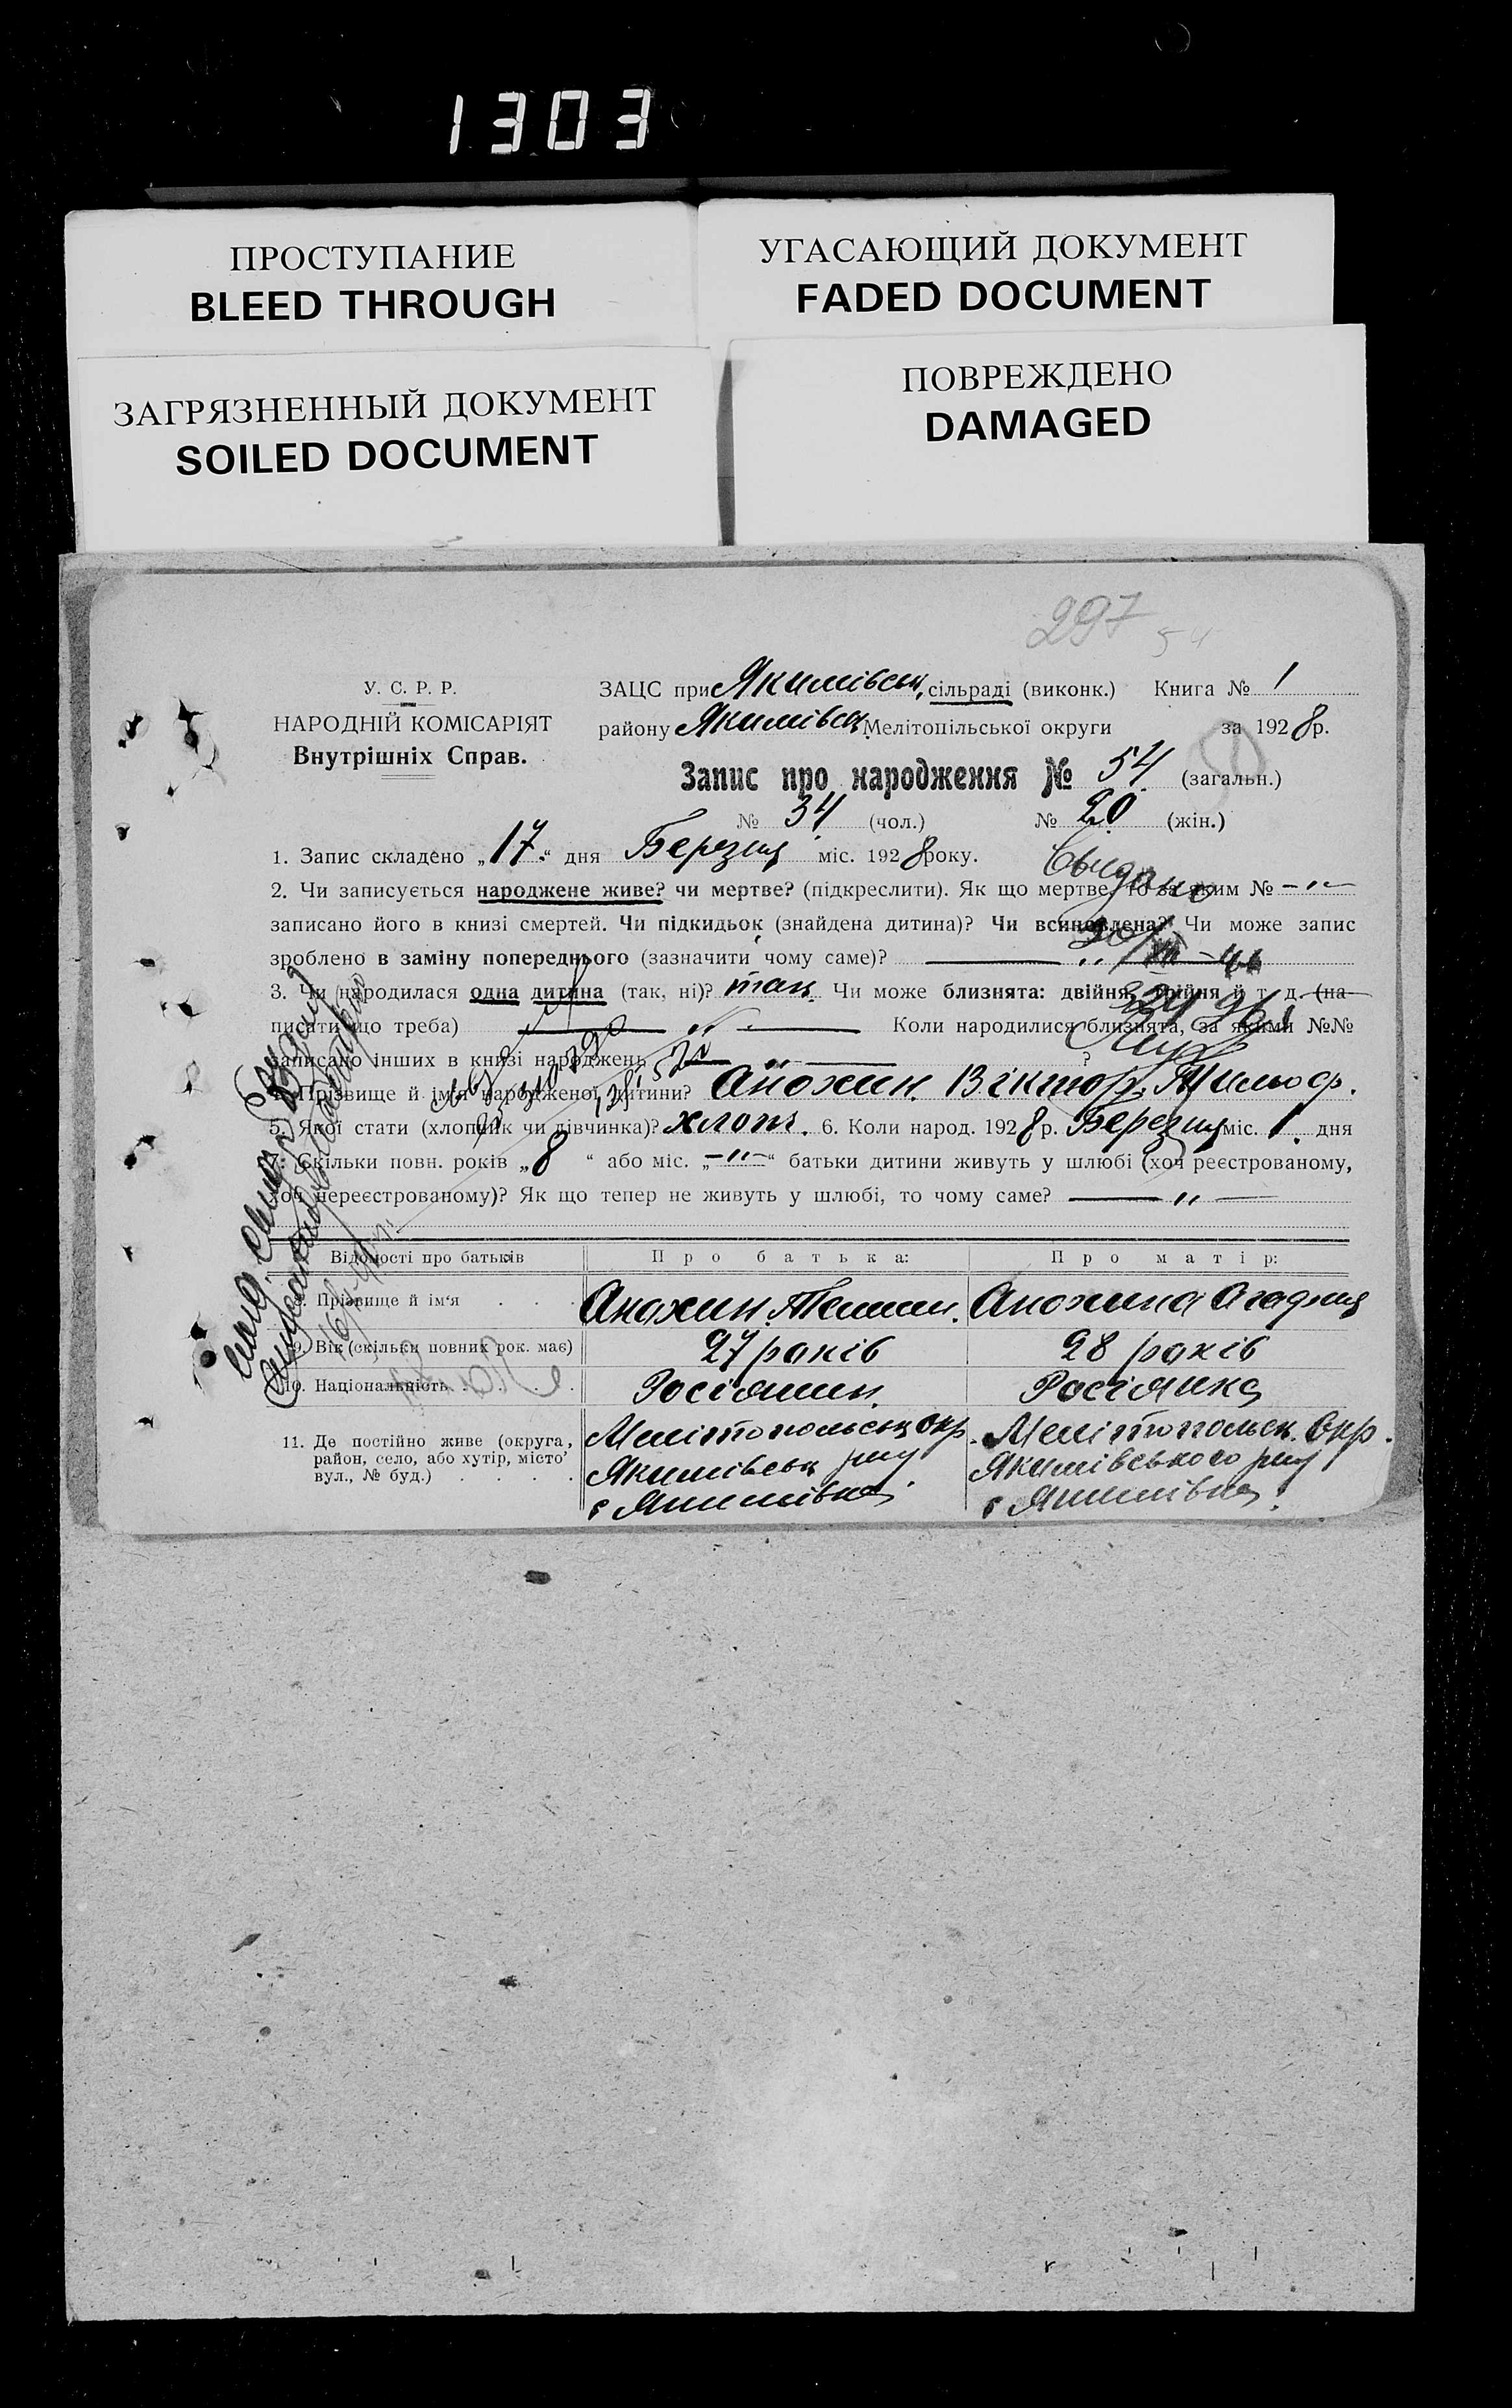 1303
ПРОСТУПАНИЕ
BLEED THROUGH
УГАСАЮЩИЙ ДОКУМЕНТ
FADED DOCUMENT
ЗАГРЯЗНЕННЫЙ ДОКУМЕНТ
SOILED DOCUMENT
ПОВРЕЖДЕНО
DAMAGED
297
54
У. С. Р. Р.
НАРОДНІЙ КОМІСАРІЯТ
Внутрішніх Справ.
ЗАЦС при Якимівськ. сільраді (виконк.) Книга № 1
району Якимівськ Мелітопільської округи за 1928 р.
Запис про народження № 54 (загальн.)
№ 34 (чол.) № 20 (жін.)
1. Запис складено „17“ дня Березня міс. 1928 року.
2. Чи записується народжене живе? чи мертве? (підкреслити). Як що мертве, то за яким № – „ –
записано його в книзі смертей. Чи підкидьок (знайдена дитина)? Чи всиновлена? Чи може запис
зроблено в заміну попереднього (зазначити чому саме)? — „ —
3. Чи народилася одна дитина (так, ні)? так. Чи може близнята: двійня, трійня й т. д. (на-
писати що треба) — „ — Коли народилися близнята, за якими №№
записано інших в книзі народжень — „ — ?
4. Прізвище й ім'я народженої дитини? Анохин. Віктор.
5. Якої стати (хлопчик чи дівчинка)? хлоп. 6. Коли народ. 1928 р. Березня міс. 1. дня
7. Скільки повн. років „8“ або міс. „– „ –“ батьки дитини живуть у шлюбі (хоч реєстрованому,
хоч нереєстрованому)? Як що тепер не живуть у шлюбі, то чому саме? — „ —
Свидано
Відомості про батьків
Про батька:
Про матір:
8. Прізвище й ім'я
Анохин
Анохина
9. Вік (скільки повник рок. має)
27 років
28 років
10. Національність
Росіянин.
Росіянка
11. Де постійно живе (округа,
район, село, або хутір, місто,
вул., № буд.)
Мелітопольськ окр.
Якимівськ р-ну
с Якимівка
Мелітопольськ. Окр.
Якимівського р-ну
с Якимівка.